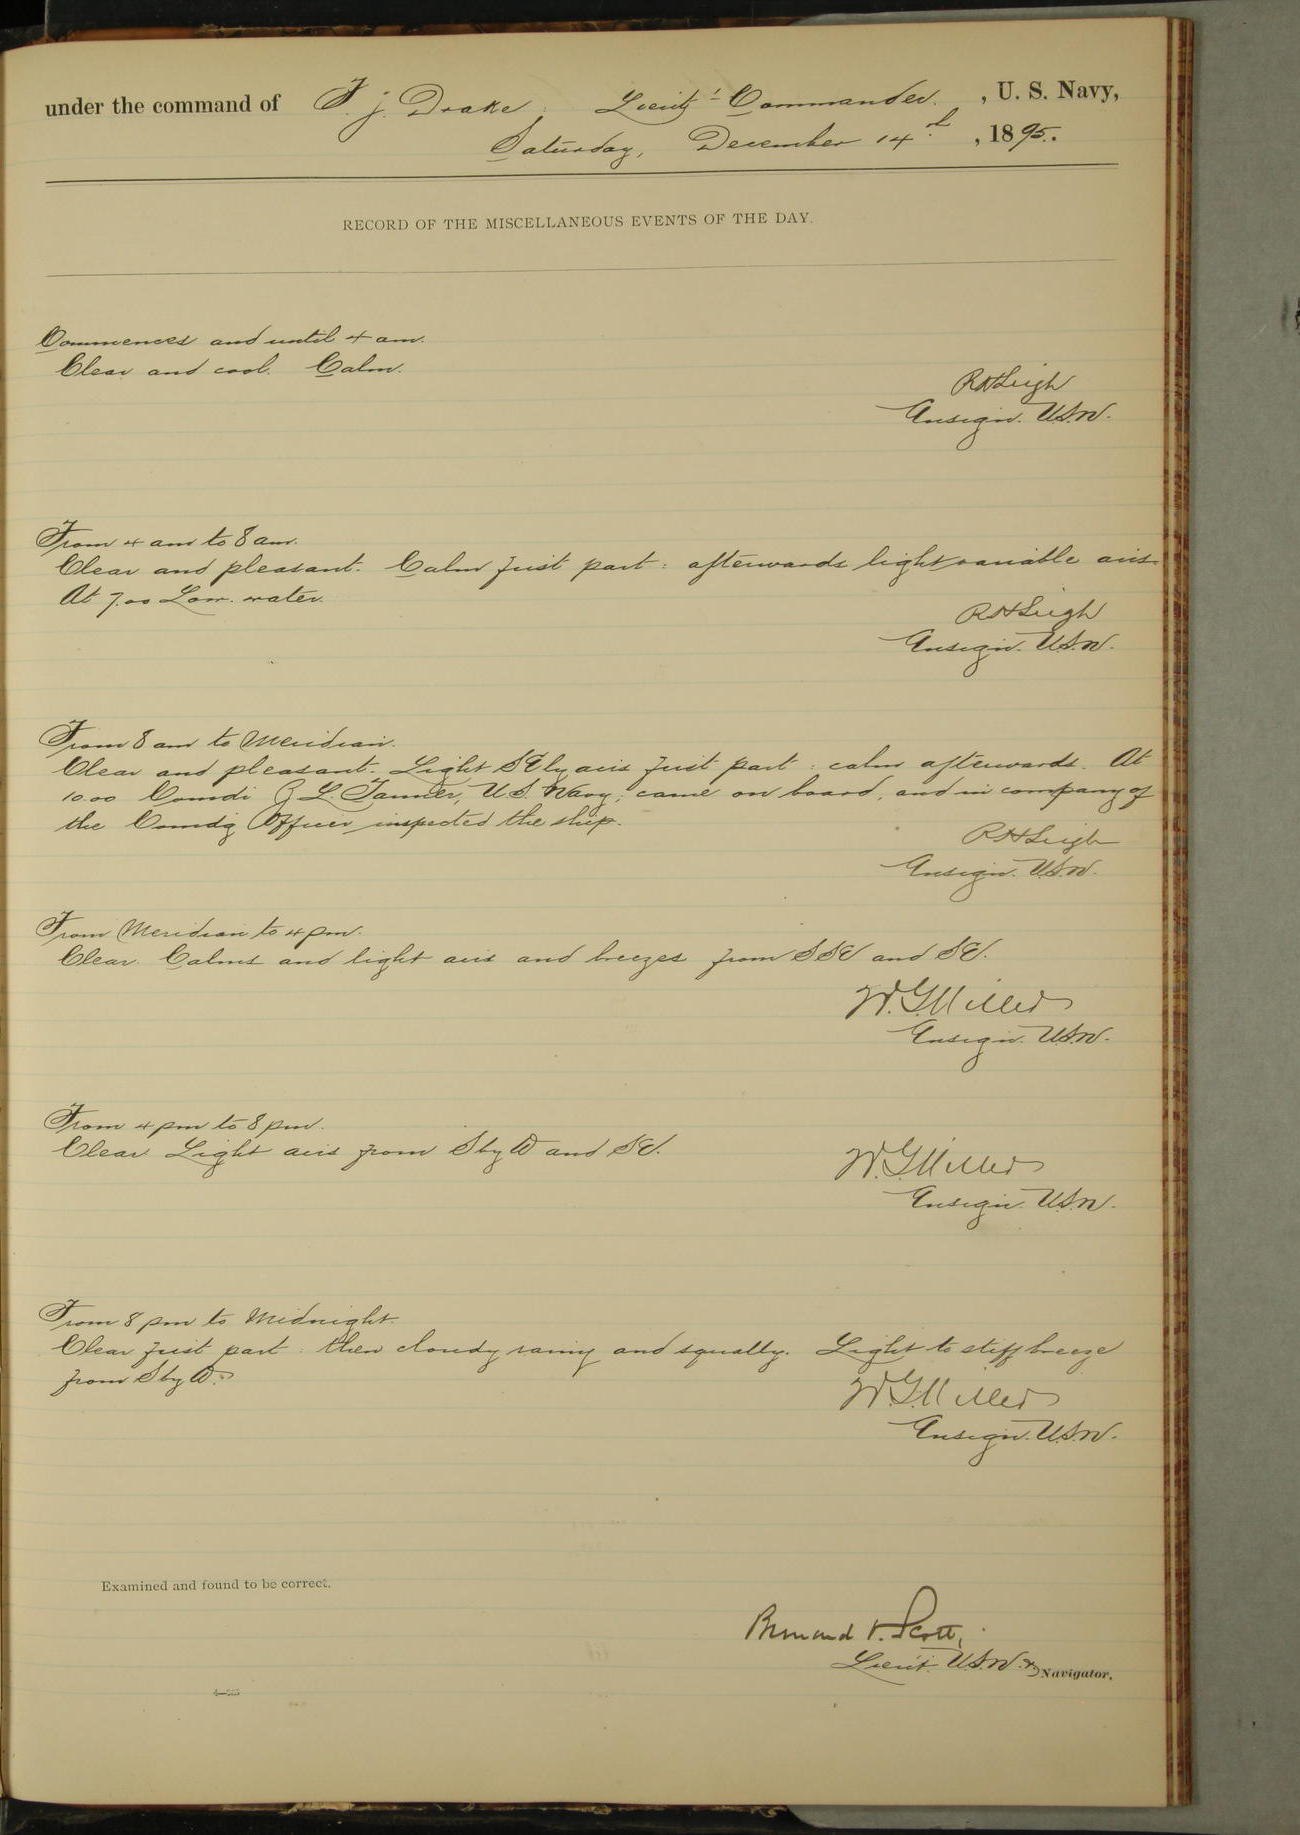 under the command of F. J. Drake, Lieut-Commander, U. S. Navy,
Saturday, December 14th, 1895.
RECORD OF THE MISCELLANEOUS EVENTS OF THE DAY.
Commences and until 4 am.
Clear and cool. Calm.
R H Leigh
Ensign. U.S.N.
From 4 am to 8 am.
Clear and pleasant. Calm first part: afterwards light variable airs.
At 7.00 Low water.
R H Leigh
Ensign. U.S.N.
From 8 am to Meridian.
Clear and pleasant. Light SEly airs first part: calm afterwards. At
10.00 Comdr Z L. Tanner, U.S. Navy, came on board, and in company of
the Comdg Officer inspected the ship.
R H Leigh
Ensign. U.S.N.
From Meridian to 4 pm.
Clear. Calms and light airs and breezes from SSE and SE.
W.G. Miller
Ensign. U.S.N.
From 4 pm to 8 pm.
Clear Light airs from S by W and SE.
W.G. Miller
Ensign. U.S.N.
From 8 pm to Midnight.
Clear first part: then cloudy rainy and squally. Light to stiff breeze
from S by W.
W.G. Miller
Ensign. U.S.N.
Examined and found to be correct.
Bernard O. Scott,
Lieut. U.S.N. & Navigator.